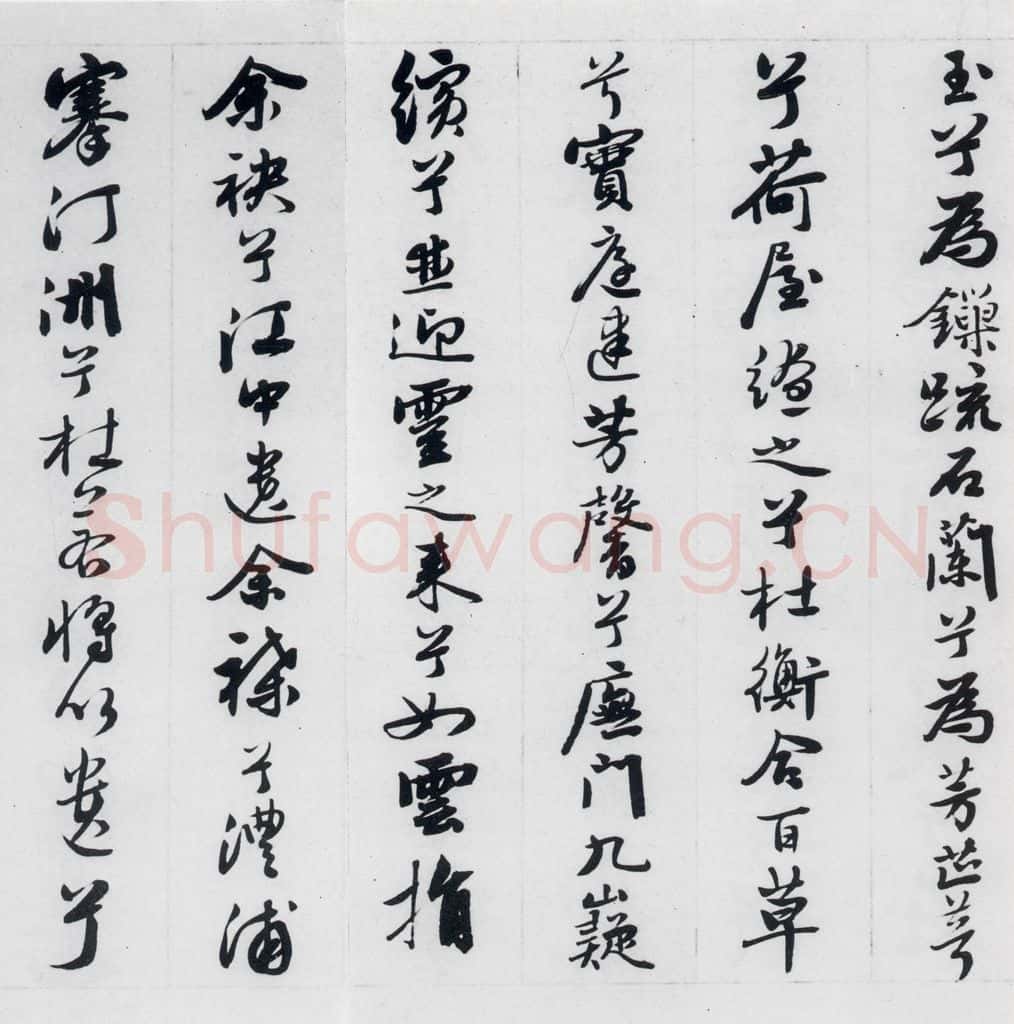 玉兮為疏石蘭兮為芳芷葺
兮荷屋繚之兮杜衡合百草
兮實庭建芳馨兮廡門九嶷
繽兮並迎靈之來兮如雲捐
余袂兮江中遺余褋兮澧浦
搴汀洲兮杜若將以遺兮
Shufawang.CN